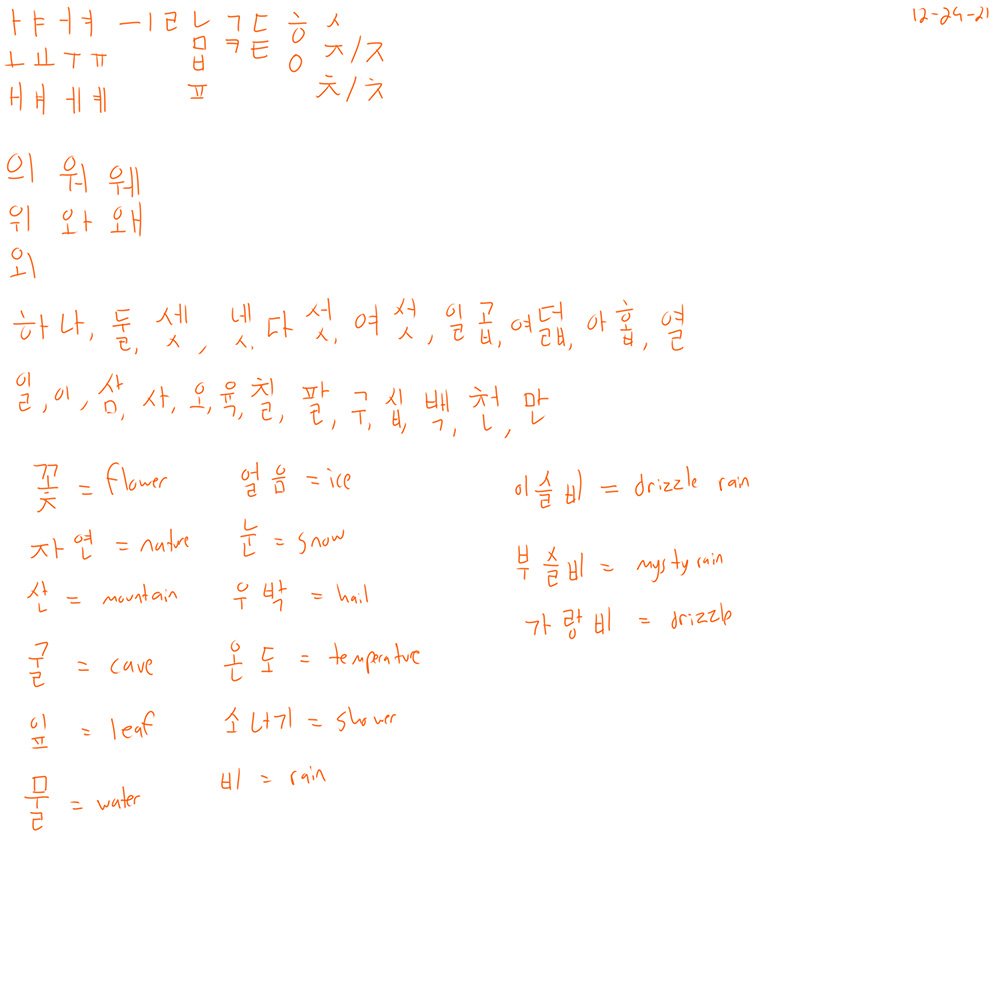 12-24-21
ㅏ ㅑ ㅓ ㅕ ㅡ ㅣ ㄹ ㄴ ㄱ ㄷ ㅎ ㅅ
ㅁ ㅋ ㅌ ㅇ ㅈ/ㅈ
ㅗ ㅛ ㅜ ㅠ ㅂ
ㅐ ㅒ ㅔ ㅖ ㅍ ㅊ/ㅊ
의 워 웨
위 와 왜
외
하나, 둘, 셋, 넷, 다섯, 여섯, 일곱, 여덟, 아홉, 열
일, 이, 삼, 사, 오, 육, 칠, 팔, 구, 십, 백, 천, 만
꽃 = flower
자연 = nature
산 = mountain
굴 = cave
잎 = leaf
물 = water
얼음 = ice
눈 = snow
우박 = hail
온도 = temperature
소너기 = shower
비 = rain
이슬비 = drizzle rain
부슬비 = mysty rain
가랑비 = drizzle